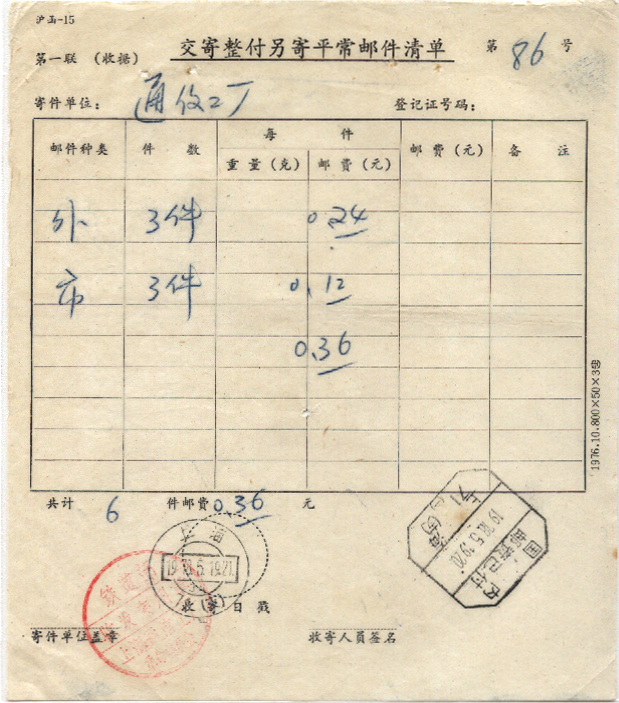 沪函-15
第一联 (收据) 交寄整付另寄平常邮件清单 第 86 号
寄件单位: 通 工厂 登记证号码:
邮件种类 件 数 每 件 邮费(元) 备 注
重量(克) 邮费(元)
外 3件 0.24
市 3件 0.12
0.36
共计 6 件邮费 0.36 元
上
收寄日戳
寄件单位盖章 收寄人员签名
国内
邮资已付
上
1976.10.800×50×3